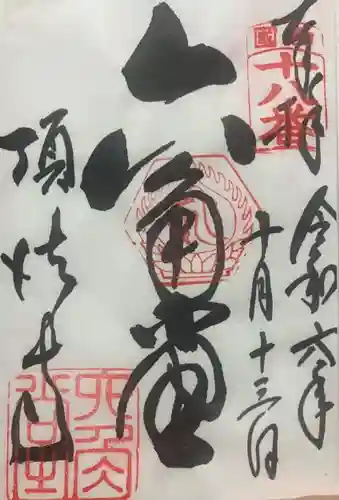 奉拝
十八番
令和六年
十月十三日
六角堂
頂法寺